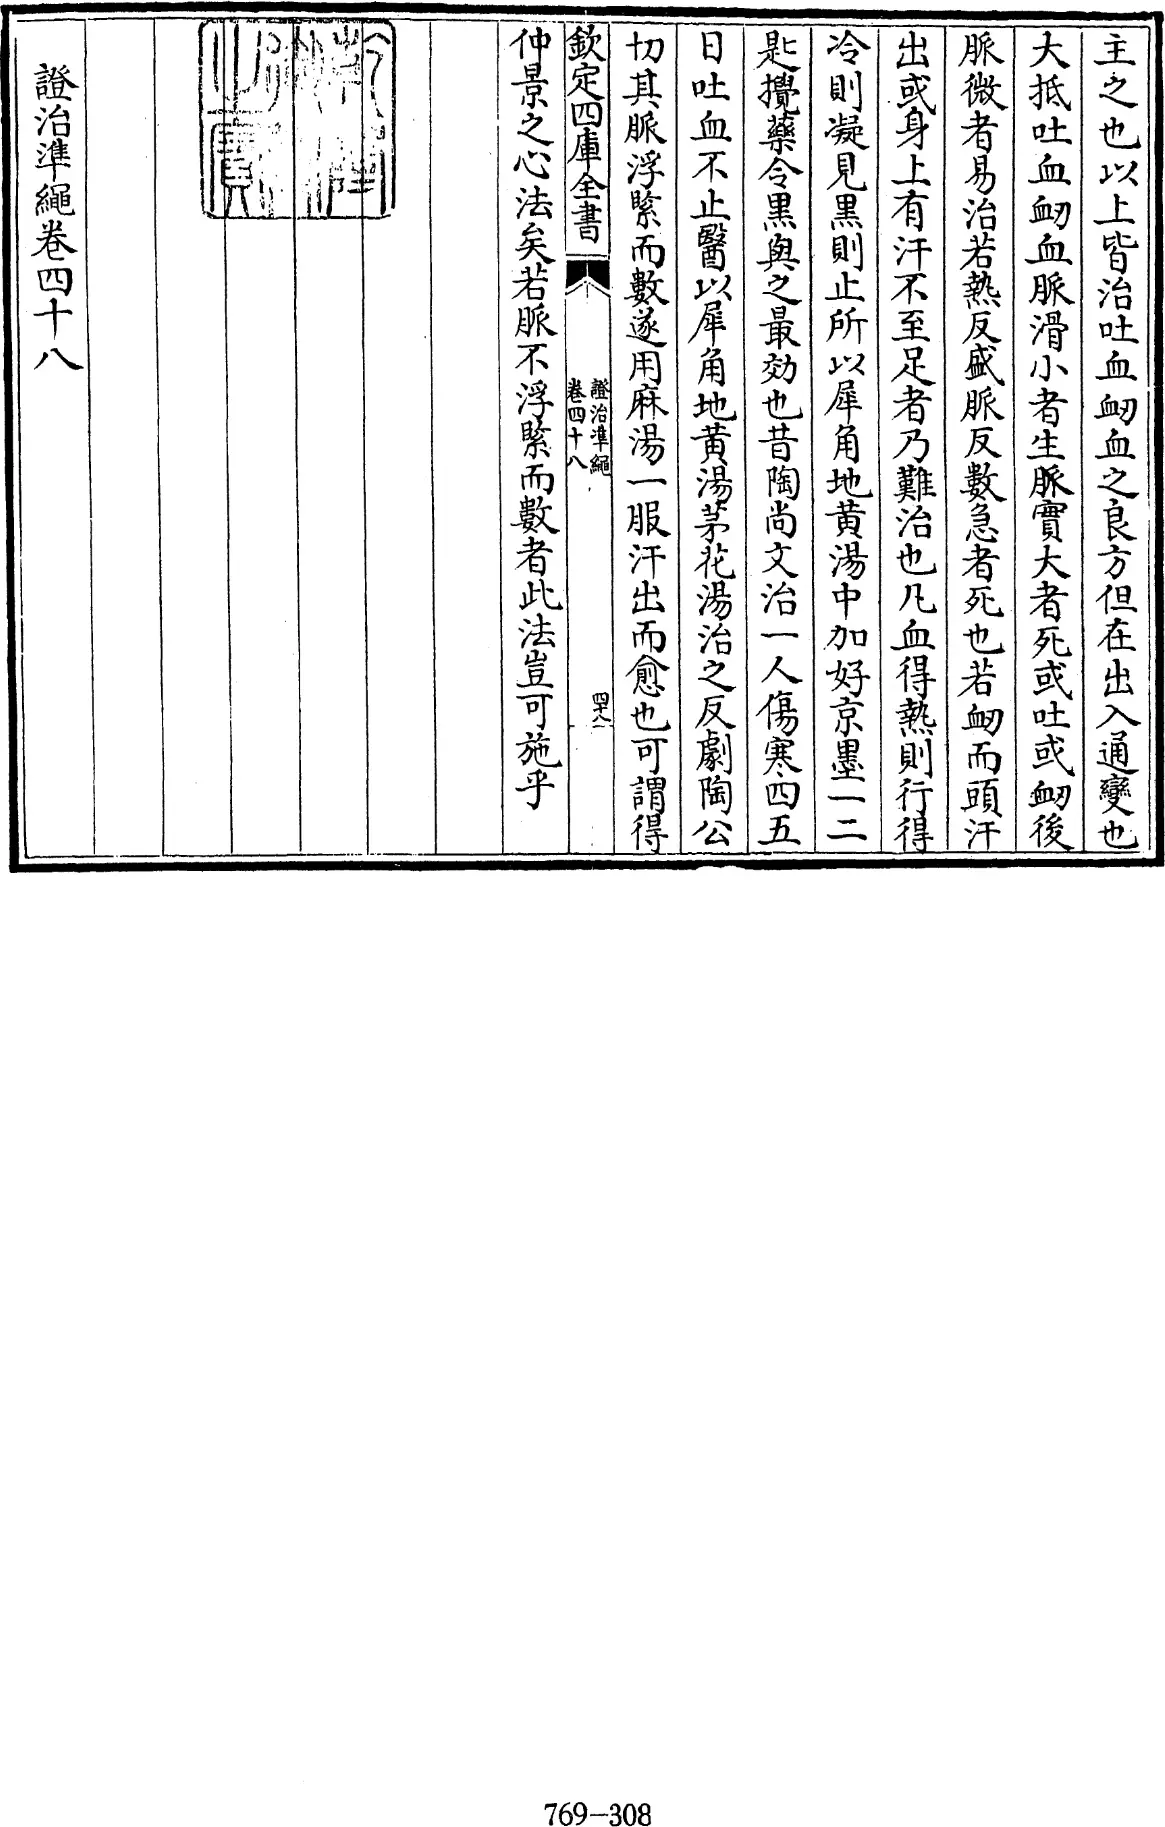 主之也以上皆治吐血衂血之良方但在出入通變也
大抵吐血衂血脈滑小者生脈實大者死或吐或衂後
脈微者易治若熱反盛脈反數急者死也若衂而頭汗
出或身上有汗不至足者乃難治也凡血得熱則行得
冷則凝見黒則止所以犀角地黄湯中加好京墨一二
匙攪藥令黒與之最効也昔陶尚文治一人傷寒四五
日吐血不止醫以犀角地黄湯茅花湯治之反劇陶公
切其脈浮緊而數遂用麻湯一服汗出而愈也可謂得
欽定四庫全書
證治準繩
卷四十八
四十八
仲景之心法矣若脈不浮緊而數者此法豈可施乎
證治準繩卷四十八
769-308